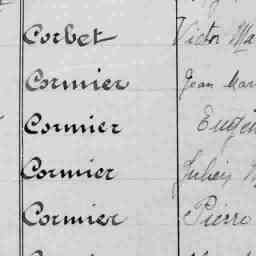 Corbet Victor Ma
Cormier Jean Mar
Cormier Eugèn
Cormier Julien
Cormier Pierre